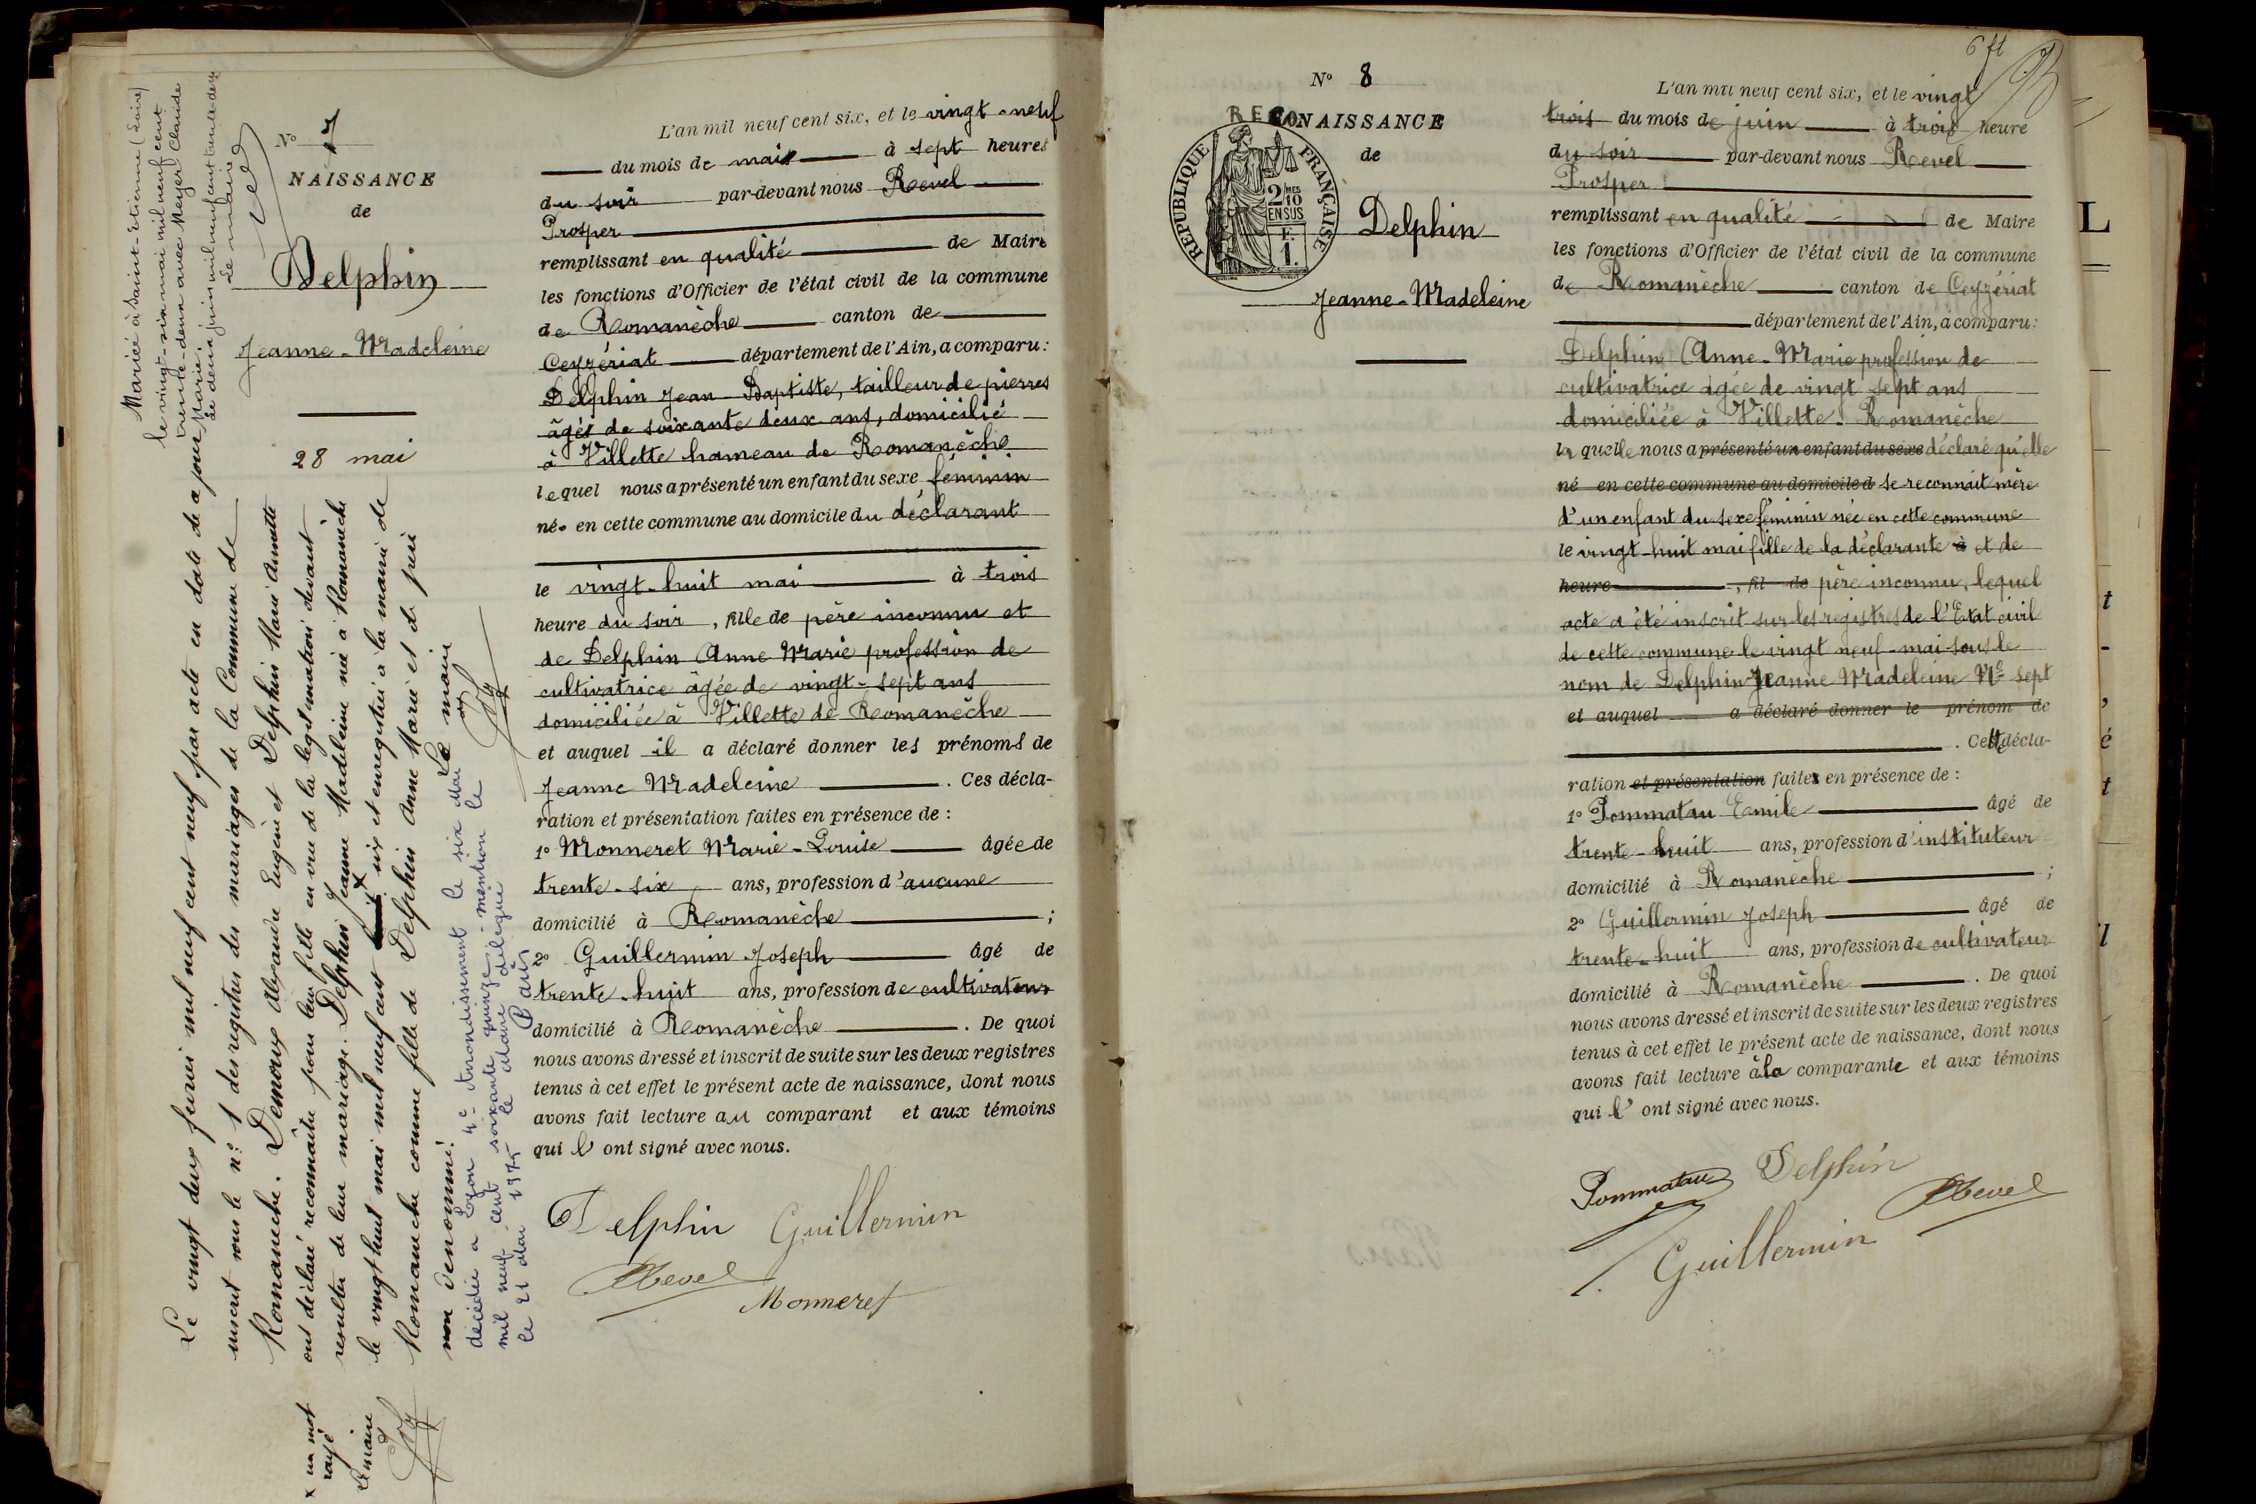 Mariée à Saint-Etienne (Loire)
le vingt-six mai mil neuf cent
trente-deux avec Meyer Claude
Marie.
de deux juin mil neuf cent trente deux
Le maire
Nº 7
NAISSANCE
de
Delphin
Jeanne-Madeleine
28 mai
Le vingt deux février mil neuf cent neuf par acte en date de ce jour
inscrit sous le nº 1 des registres des mariages de la Commune de
Romaneche. Demoux Alexandre Eugène et Delphin Marie Annette
ont déclaré reconnaître pour leur fille en vue de la légitimation devant
résulter de leur mariage. Delphin Jeanne Madeleine née à Romanèche
le vingt huit mai mil neuf cent x six et enregistrée à la mairie de
Romaneche comme fille de Delphin Anne Marie et de père
non dénommé.
Le maire
x un mot
rayé
Le maire
décédée à Lyon 4e Arrondissement le six Mai
mil neuf cent soixante quinze, mention le
le 21 Mai 1975 le Maire délégué
L'an mil neuf cent six, et le vingt-neuf
du mois de mai à sept heures
du soir par-devant nous Revel
Prosper
remplissant en qualité de Maire
les fonctions d'Officier de l'état civil de la commune
de Romanèche canton de
Ceyzériat département de l'Ain, a comparu:
Delphin Jean-Baptiste, tailleur de pierres
âgés de soixante deux ans, domicilié
à Villette hameau de Romanèche
lequel nous a présenté un enfant du sexe féminin
née en cette commune au domicile du déclarant
le vingt-huit mai à trois
heure du soir, fille de père inconnu et
de Delphin Anne Marie profession de
cultivatrice âgée de vingt-sept ans
domiciliée à Villette de Romanèche
et auquel il a déclaré donner les prénoms de
Jeanne Madeleine. Ces décla-
ration et présentation faites en présence de :
1º Monneret Marie-Louise âgée de
trente-six ans, profession d'aucune
domicilié à Romanèche ;
2º Guillermin Joseph âgé de
trente-huit ans, profession de cultivateur
domicilié à Romanèche. De quoi
nous avons dressé et inscrit de suite sur les deux registres
tenus à cet effet le présent acte de naissance, dont nous
avons fait lecture au comparant et aux témoins
qui l' ont signé avec nous.
Delphin Guillermin
Revel
Monneret
6 ft
Nº 8
RECONAISSANCE
de
REPUBLIQUE FRANÇAISE
2/10 MES
EN SUS
F.
1.
Delphin
Jeanne-Madeleine
L'an mil neuf cent six, et le vingt
trois du mois de juin à trois heure
du soir par-devant nous Revel
Prosper
remplissant en qualité de Maire
les fonctions d'Officier de l'état civil de la commune
de Romanèche canton de Ceyzériat
département de l'Ain, a comparu:
Delphin Anne-Marie profession de
cultivatrice âgée de vingt sept ans
domiciliée à Villette-Romanèche
la quelle nous a présenté un enfant du sexe déclaré qu'elle
né en cette commune au domicile d se reconnait mère
d'un enfant du sexe féminin née en cette commune
le vingt-huit mai fille de la déclarante à et de
heure , fil de père inconnu, lequel
acte a été inscrit sur les registres de l'Etat civil
de cette commune le vingt neuf mai sous le
nom de Delphin Jeanne Madeleine Nº sept
et auquel a déclaré donner le prénom de
. Cette décla-
ration et présentation faites en présence de :
1º Pommatau Emile âgé de
trente-huit ans, profession d'instituteur
domicilié à Romanèche ;
2º Guillermin Joseph âgé de
trente-huit ans, profession de cultivateur
domicilié à Romanèche. De quoi
nous avons dressé et inscrit de suite sur les deux registres
tenus à cet effet le présent acte de naissance, dont nous
avons fait lecture à la comparante et aux témoins
qui l' ont signé avec nous.
Pommatau Delphin
Revel
Guillermin
L
t
-
,
é
t
l